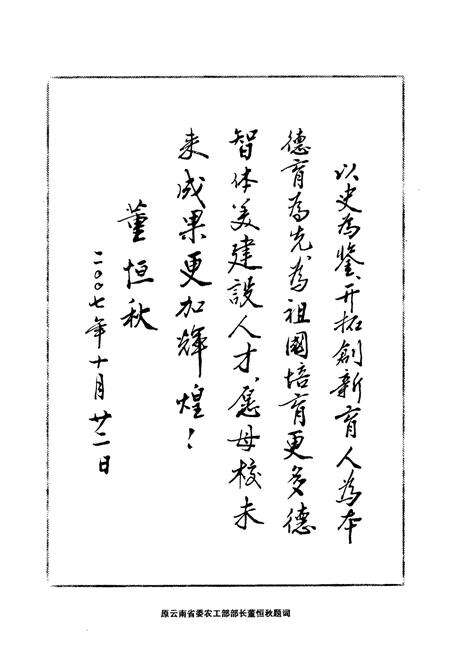 以史為鑒、开拓創新育人為本
德育為先、為祖國培育更多德
智体美建設人才、愿母校未
来成果更加輝煌！
董恒秋
二〇〇七年十月廿二日
原云南省委农工部部长董恒秋题词